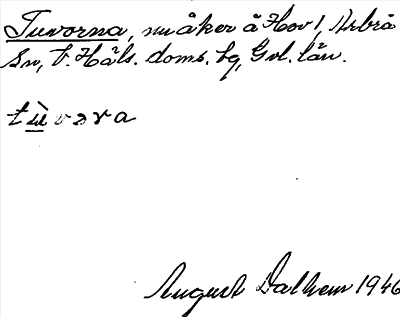 Tuvorna, nu åker å Hov 1, Arbrå
Sn, V. Häls. doms. sg, Gvl. län.
tùvɔra
August Dalhem 1946